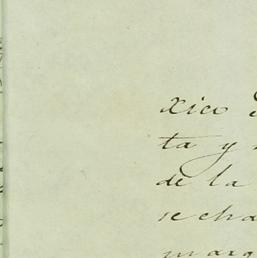 xico
ta y
de la
se cha
marg